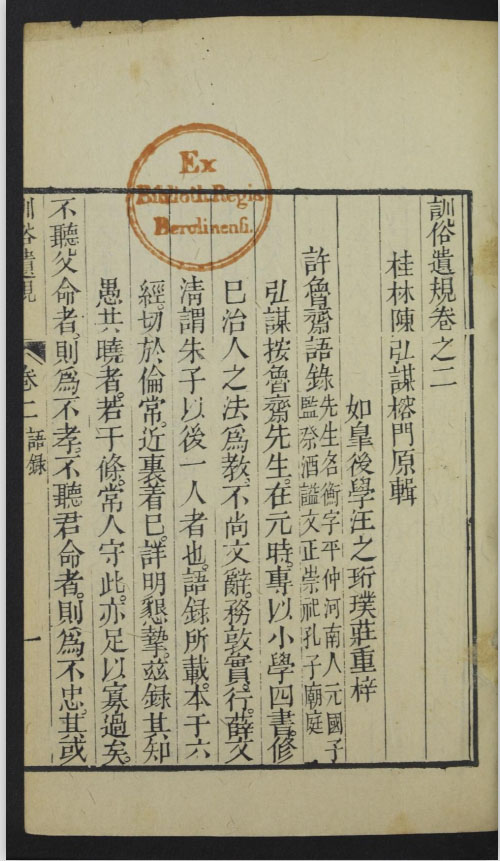 訓俗遺規卷之二
桂林陳弘謀榕門原輯
如皇後學汪之珩璞莊重梓
許魯齋語錄先生名衡字平仲河南人元國子
監祭酒謚文正崇祀孔子廟庭
弘謀按魯齋先生。在元時。專以小學四書。修
巳治人之法爲教。不尚文辭。務敦實行。薛文
淸謂朱子以後一人者也。語錄所載。本于六
經。切於倫常。近裏着巳。詳明懇摯。茲錄其知
愚共曉者。若干條。常人守此。亦足以寡過矣。
不聽父命者。則爲不孝。不聽君命者。則爲不忠。其或
訓俗遺規
卷二
語錄
一
Ex
Biblioth. Regia
Berolinensi.